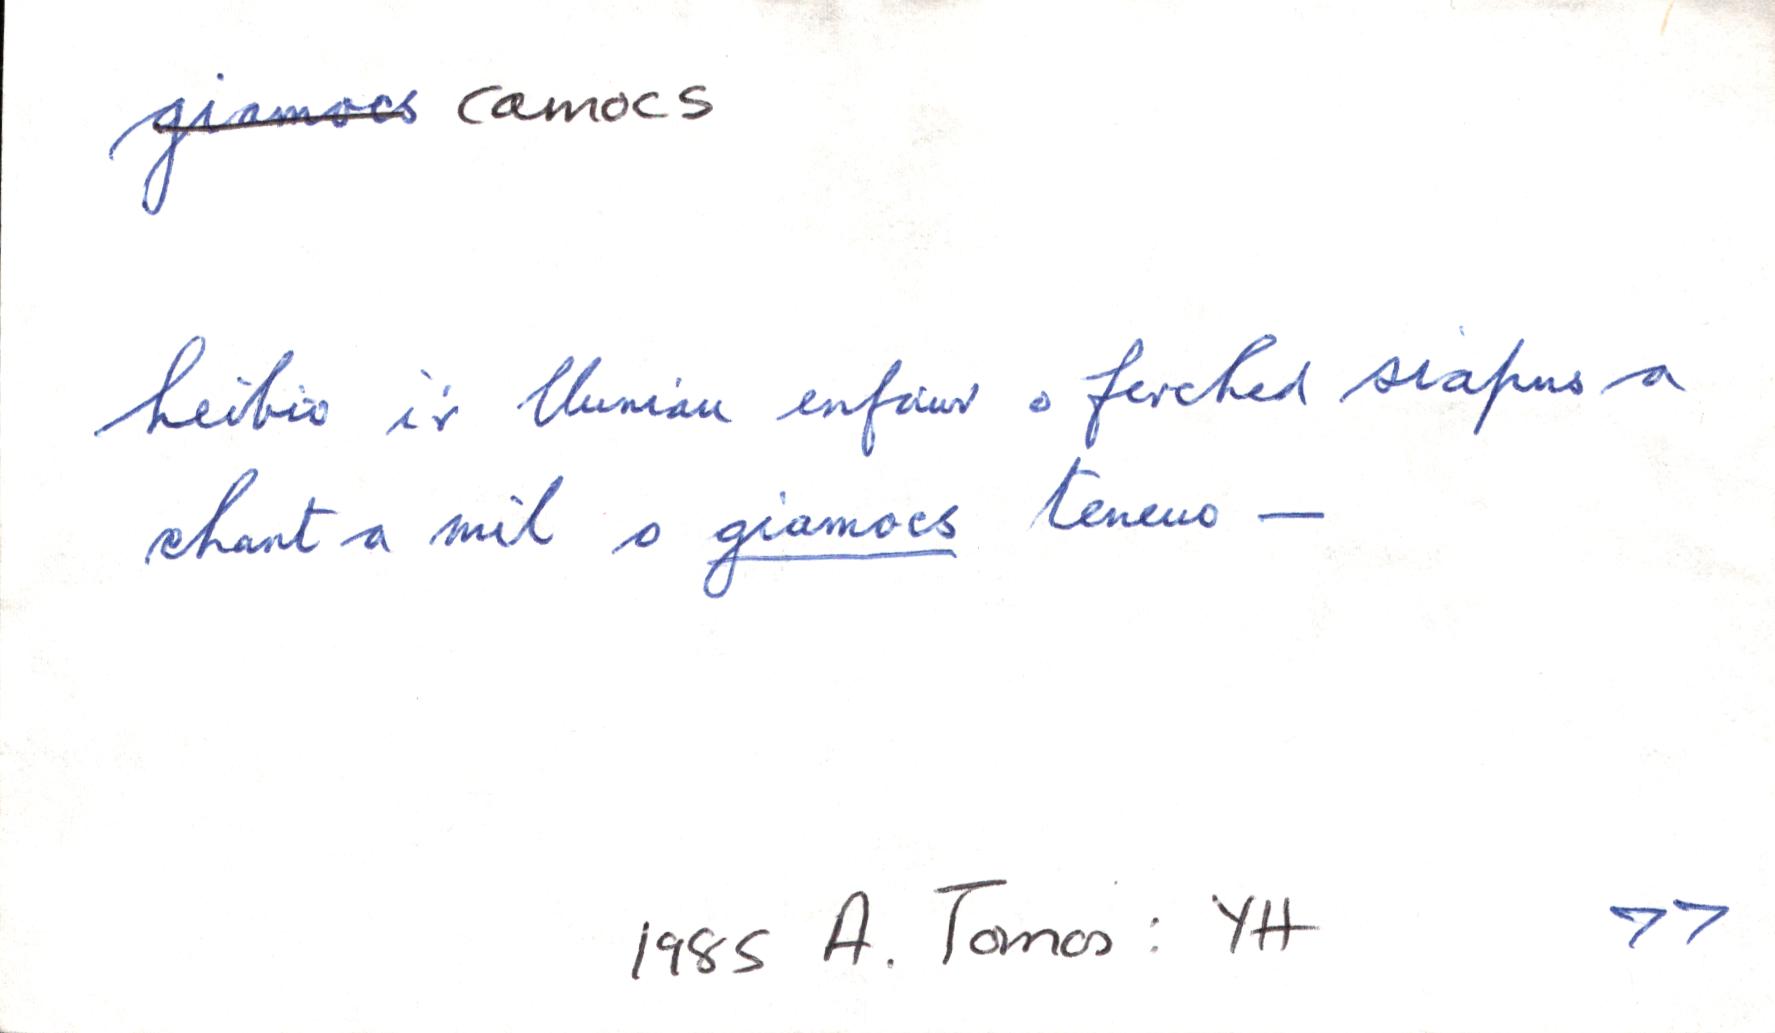 giamocs camocs
heibio i'r lluniau enfawr o ferched siapus a
chant a mil o giamocs teneuo —
1985 A. Tomos: YH 77